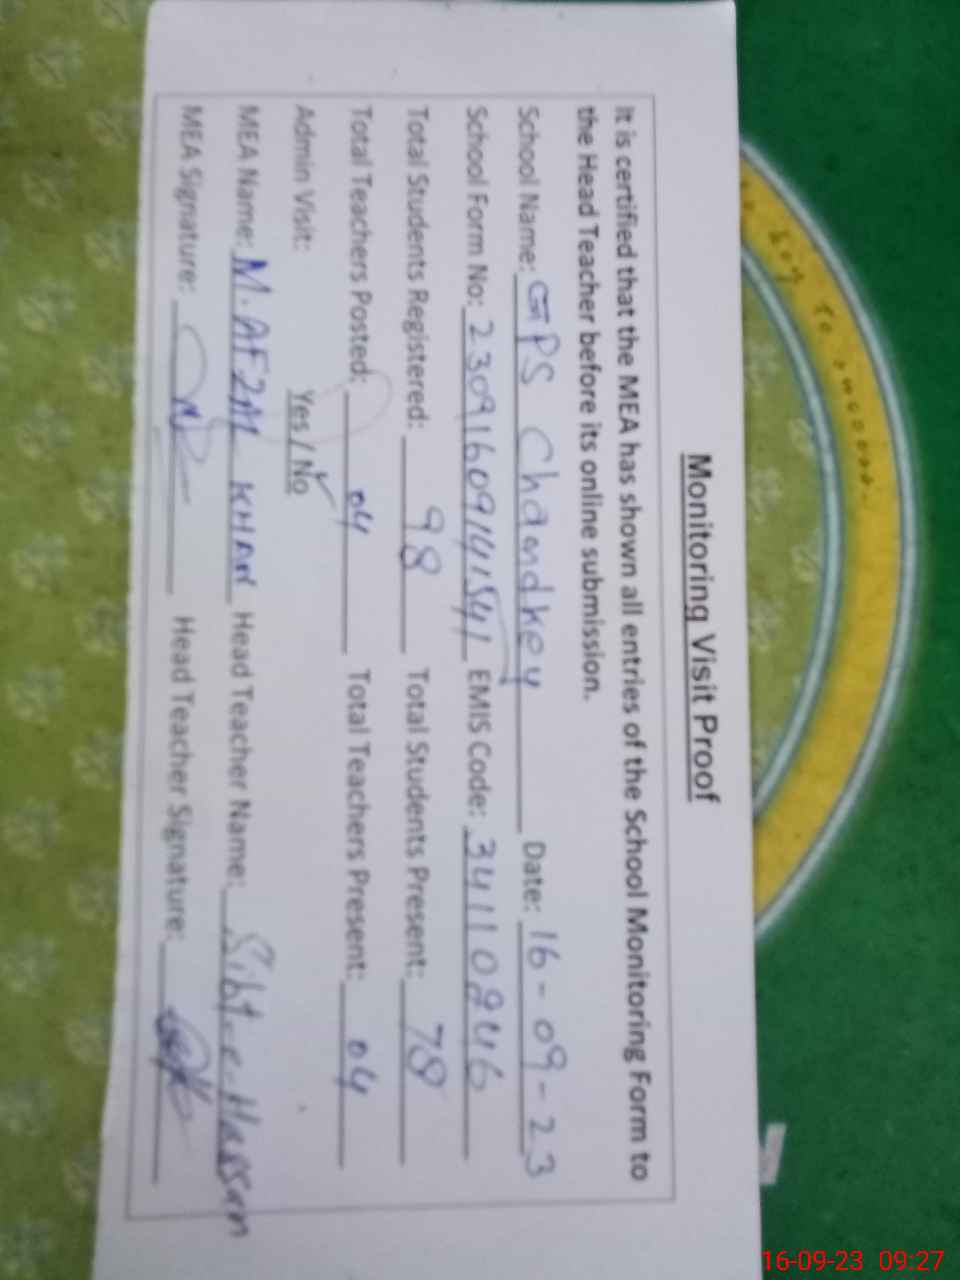 Monitoring Visit Proof
It is certified that the MEA has shown all entries of the School Monitoring Form to
the Head Teacher before its online submission.
School Name: GPS Chandkey Date: 16-09-23
School Form No: 23091609141541 EMIS Code: 34110246
Total Students Registered: 98 Total Students Present: 78
Total Teachers Posted: 04 Total Teachers Present: 04
Admin Visit: Yes / No ✓
MEA Name: M. AFZAL KHAN Head Teacher Name: Sibt-e-Hassan
MEA Signature: Head Teacher Signature:
16-09-23 09:27